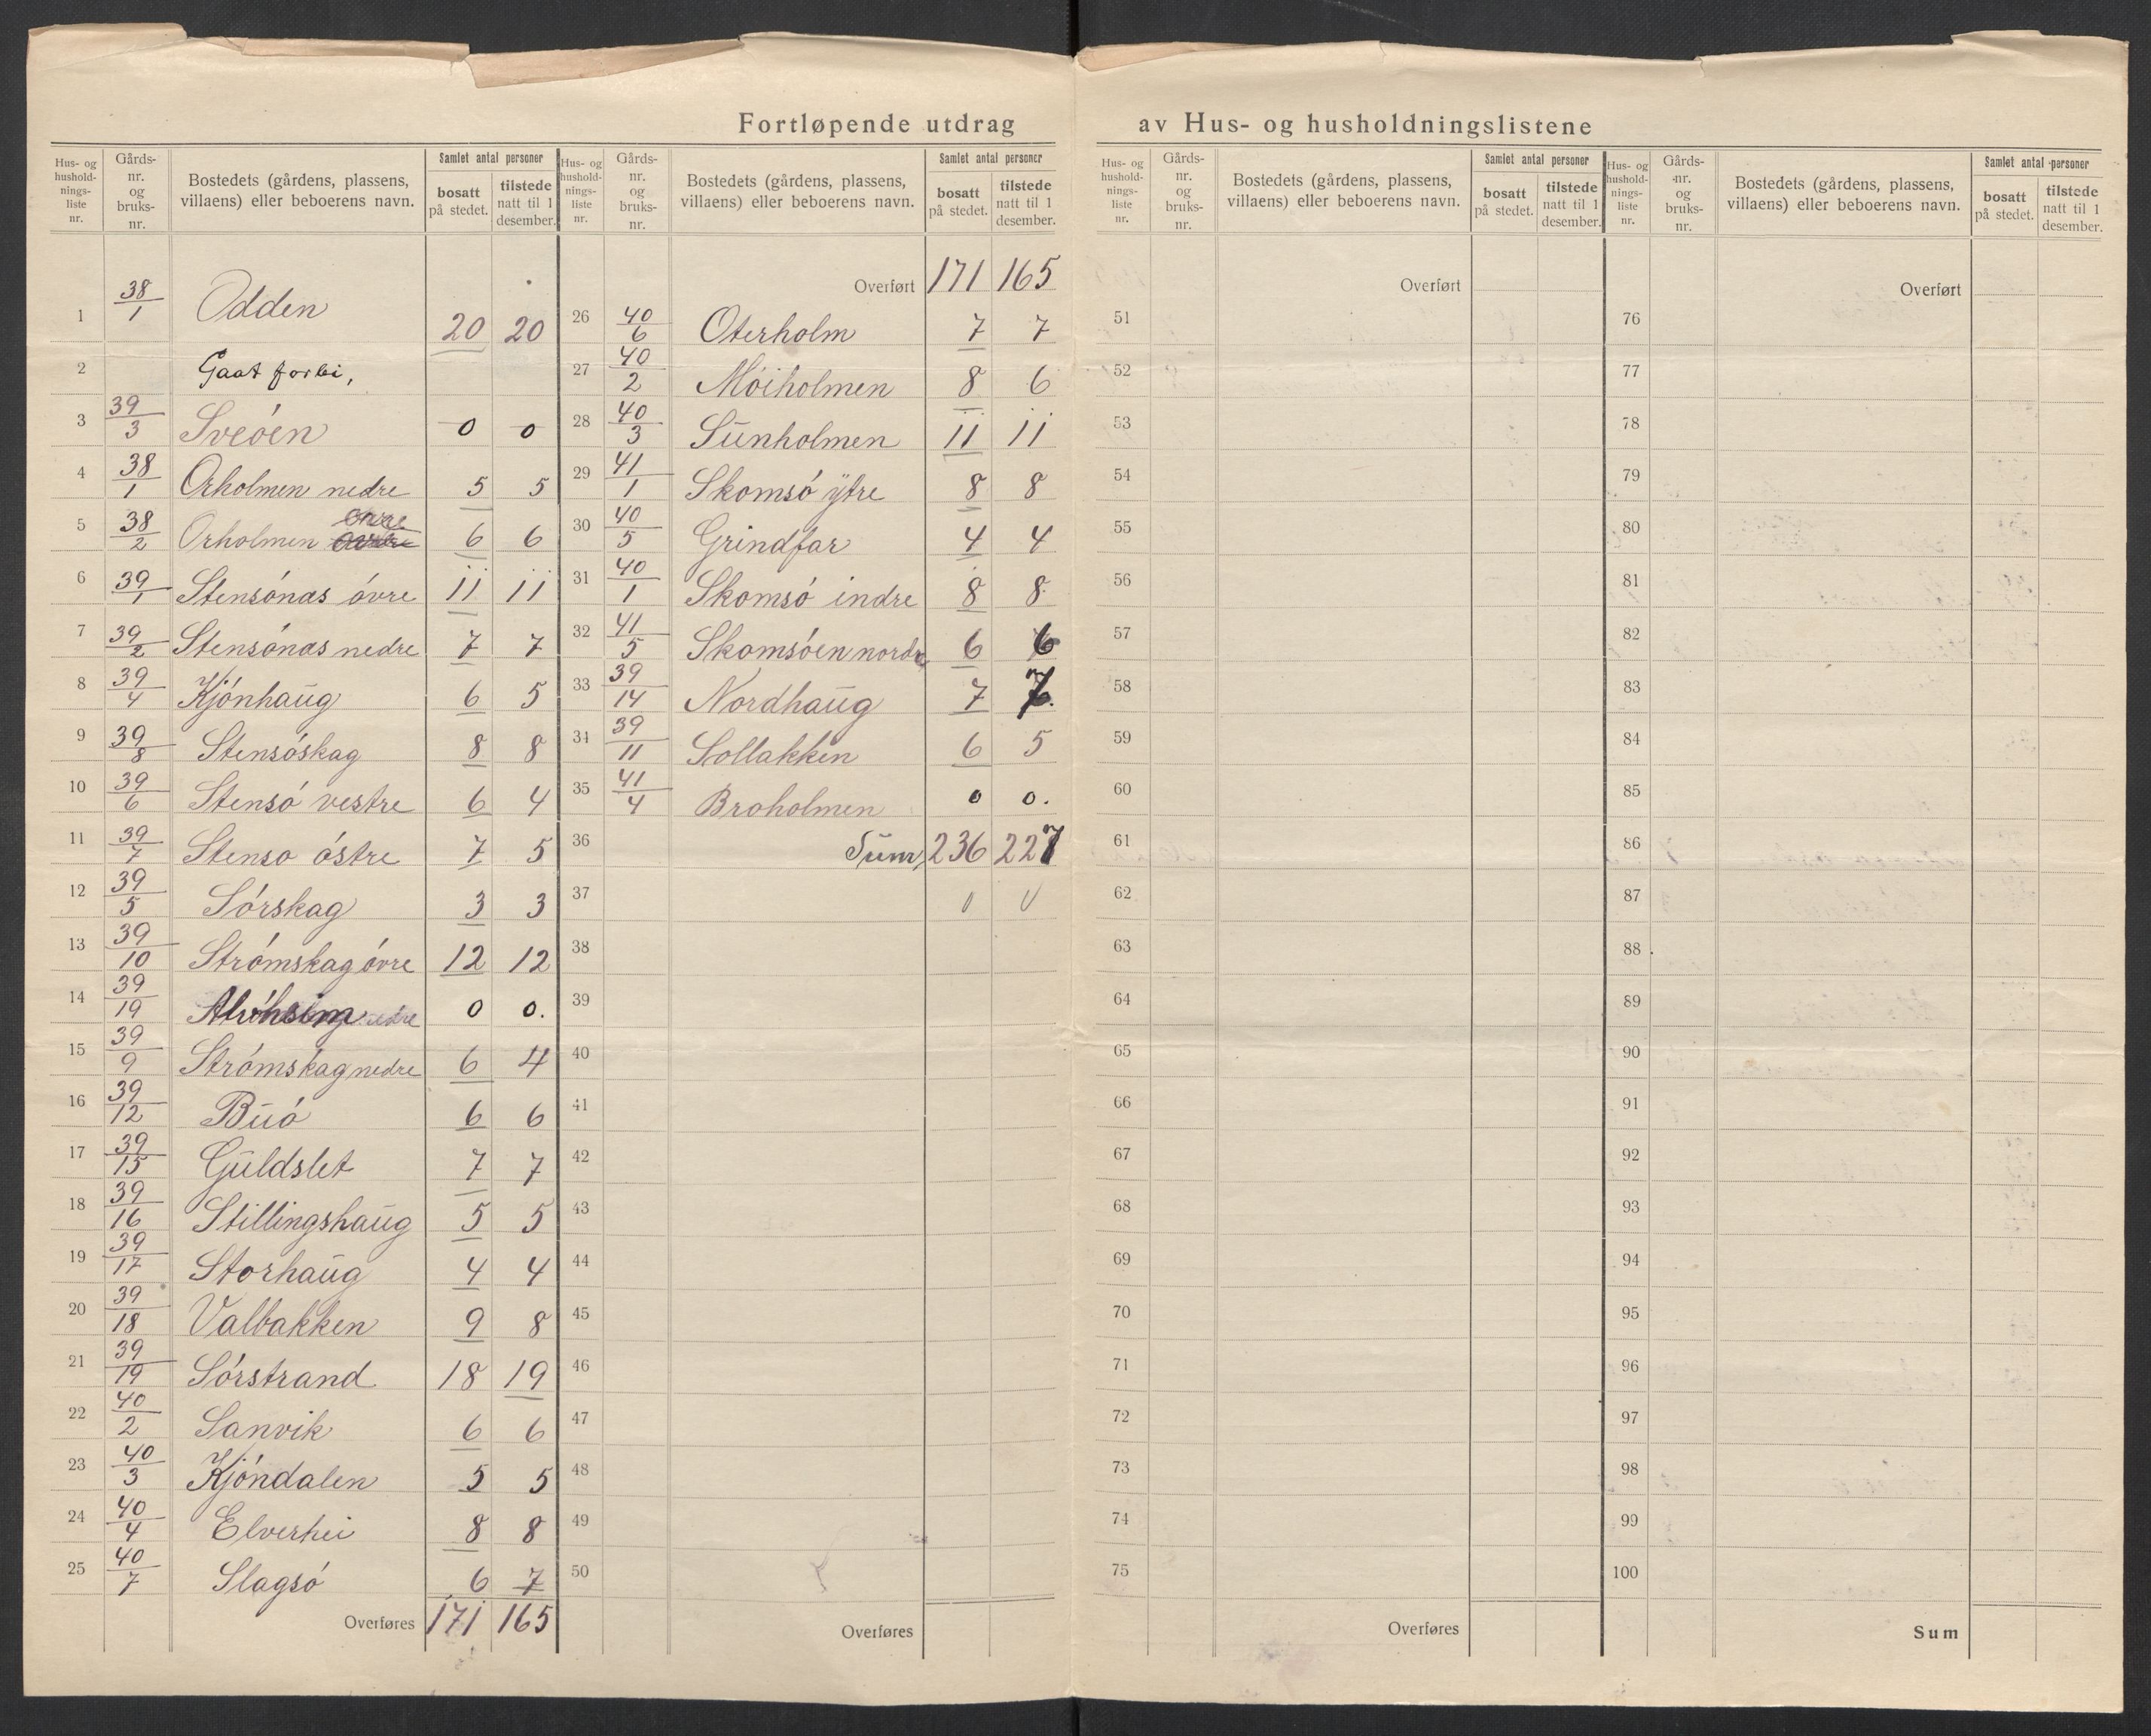 Fortløpende utdrag av Hus- og husholdningslistene
Hus- og hushold-nings-liste nr. Gårds-nr. og bruks-nr. Bostedets (gårdens, plassens, villaens) eller beboerens navn. Samlet antal personer bosatt på stedet. tilstede natt til 1 desember.
1 38/1 Odden 20 20
2 Gaat forbi,
3 39/3 Sveóen 0 0
4 38/1 Orholmen nedre 5 5
5 38/2 Orholmen óvre 6 6
6 39/1 Stensónas óvre 11 11
7 39/2 Stensónas nedre 7 7
8 39/4 Kjónhaug 6 5
9 39/8 Stensóskag 8 8
10 39/6 Stensó vestre 6 4
11 39/7 Stenso óstre 7 5
12 39/5 Sórskag 3 3
13 39/10 Strómskag óvre 12 12
14 39/19 0 0.
15 39/9 Strómskag nedre 6 4
16 39/12 Buó 6 6
17 39/15 Guldslet 7 7
18 39/16 Stillingshaug 5 5
19 39/17 Storhaug 4 4
20 39/18 Valbakken 9 8
21 39/19 Sórstrand 18 19
22 40/2 Sanvik 6 6
23 40/3 Kjóndalen 5 5
24 40/4 Elverhei 8 8
25 40/7 Slagsó 6 7
Overføres 171 165
Hus- og hushold-nings-liste nr. Gårds-nr. og bruks-nr. Bostedets (gårdens, plassens, villaens) eller beboerens navn. Samlet antal personer bosatt på stedet. tilstede natt til 1 desember.
Overført 171 165
26 40/6 Oterholm 7 7
27 40/2 Móiholmen 8 6
28 40/3 Sunholmen 11 11
29 41/1 Skomsó ytre 8 8
30 40/5 Grindfar 4 4
31 40/1 Skomsó indre 8 8
32 41/5 Skomsóen nordre 6 6
33 39/14 Nordhaug 7 7.
34 39/11 Sollakken 6 5
35 41/4 Broholmen 0 0.
36 Sum, 236 227
37
38
39
40
41
42
43
44
45
46
47
48
49
50
Overføres
Hus- og hushold-nings-liste nr. Gårds-nr. og bruks-nr. Bostedets (gårdens, plassens, villaens) eller beboerens navn. Samlet antal personer bosatt på stedet. tilstede natt til 1 desember.
Overført
51
52
53
54
55
56
57
58
59
60
61
62
63
64
65
66
67
68
69
70
71
72
73
74
75
Overføres
Hus- og hushold-nings-liste nr. Gårds-nr. og bruks-nr. Bostedets (gårdens, plassens, villaens) eller beboerens navn. Samlet antal personer bosatt på stedet. tilstede natt til 1 desember.
Overført
76
77
78
79
80
81
82
83
84
85
86
87
88
89
90
91
92
93
94
95
96
97
98
99
100
Sum